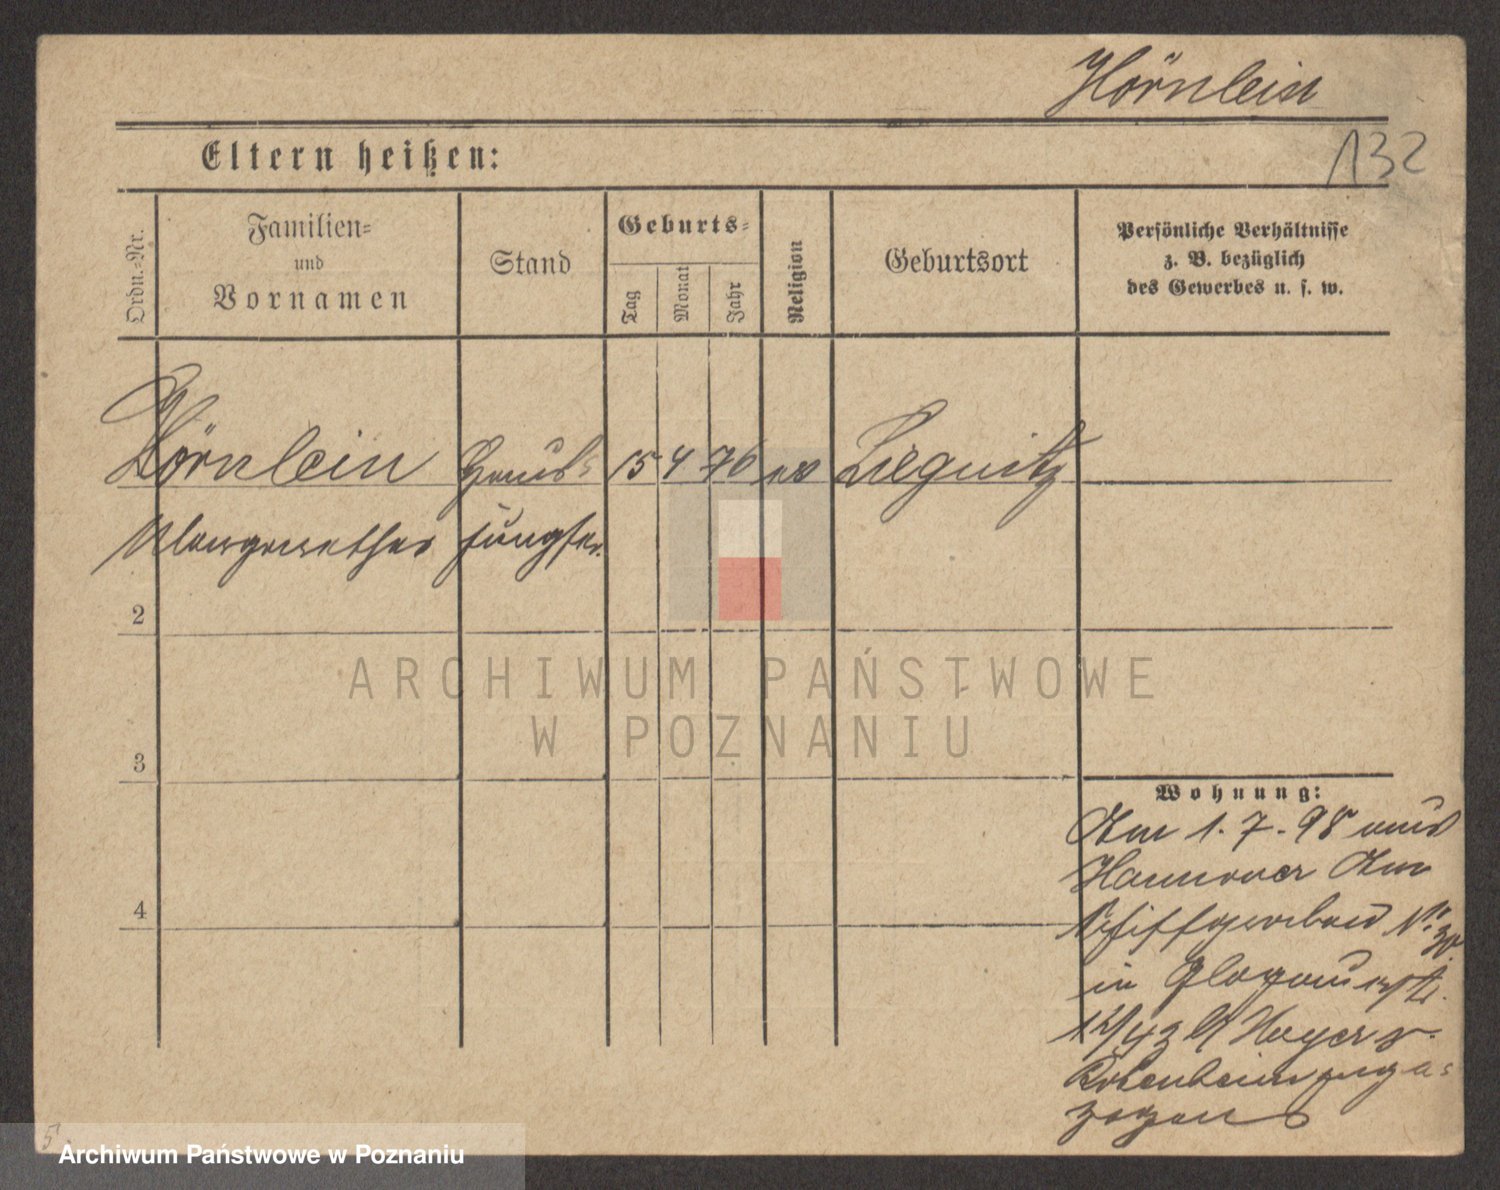 Hörnlein
132
Eltern heißen:
Ordn.-Nr.
Familien-
und
Vornamen
Stand
Geburts-
Tag
Monat
Jahr
Religion
Geburtsort
Persönliche Verhältnisse
z. B. bezüglich
des Gewerbes u. s. w.
Hörnlein Haus- 15 4 76 ev Liegnitz
Margarethe jungfer.
2
3
4
Wohnung:
Am 1. 7. 98 aus
Hannover Am
No 30
in Glogauerstr.
Hoyer v.
Rosenheim zuge-
zogen
ARCHIWUM PAŃSTWOWE
W POZNANIU
5
Archiwum Państwowe w Poznaniu